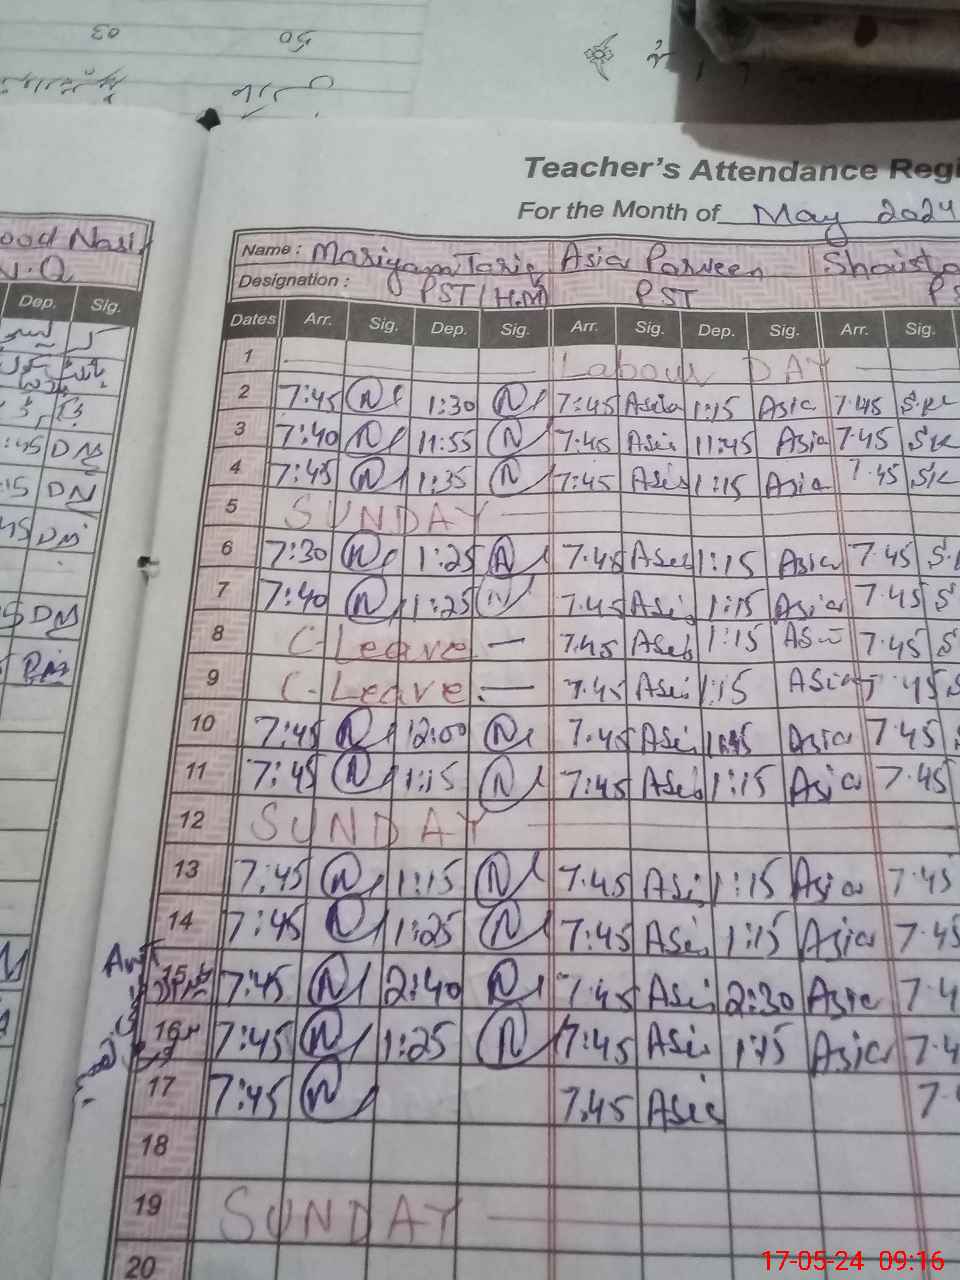 03
50
Teacher's Attendance Regi
For the Month of May 2024
ood Nasi
Dep. Sig.
:45 DM
:15 DN
45 DM
5 DM
Name : Mariyam Tariq Asia Parveen Shaista
Designation : PST (H.M) PST PS
Dates Arr. Sig. Dep. Sig. Arr. Sig. Dep. Sig. Arr. Sig.
1 Labour DAY
2 7:45 N 1:30 N 7:45 Asia 1:15 Asia 7.45 S.K
3 7:40 N 11:55 N 7:45 Asia 11:45 Asia 7.45 SK
4 7:45 N 1:35 N 7:45 Asia 1:15 Asia 7.45 SK
5 SUNDAY
6 7:30 N 1:25 N 7.45 Asia 1:15 Asia 7.45 S.
7 7:40 N 1:25 N 7.45 Asia 1:15 Asia 7.45 S
8 C-Leave 7.45 Asia 1:15 Asia 7.45 S
9 C-Leave. 7.45 Asia 1:15 Asia 7.45 S
10 7:45 N 12:00 N 7.45 Asia Asia 7.45
11 7:45 N 1:15 N 7:45 Asia 1:15 Asia 7.45
12 SUNDAY
13 7:45 N 1:15 N 7.45 Asia 1:15 Asia 7.45
14 7:45 N 1:25 N 7:45 Asia 1:15 Asia 7.45
15 7:45 N 2:40 N 7.45 Asia 2:30 Asia 7.4
16 7:45 N 1:25 N 7:45 Asia 1:15 Asia 7.4
17 7:45 N 7.45 Asia 7.
18
19 SUNDAY
20
17-05-24 09:16